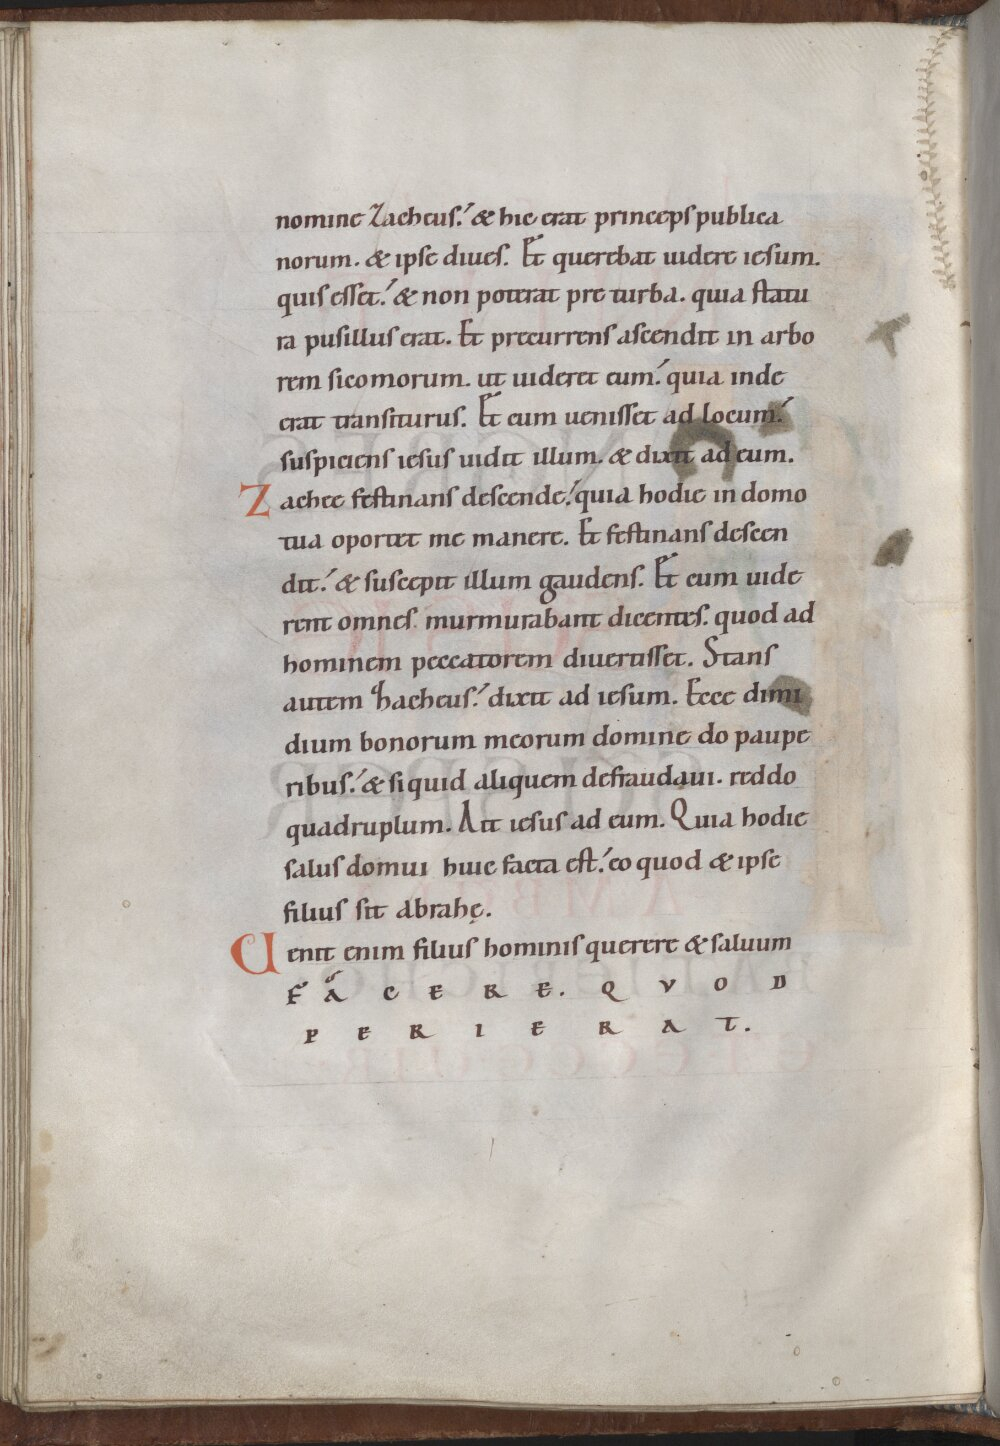 nomine Zacheus. & hic erat princeps publica
norum. & ipse diues. Et querebat uidere iesum.
quis esset. & non poterat pre turba. quia statu
ra pusillus erat. Et precurrens ascendit in arbo
rem sicomorum. ut uideret eum. quia inde
erat transiturus. Et cum uenisset ad locum.
suspiciens iesus uidit illum. & dixit ad eum.
Zachee festinans descende. quia hodie in domo
tua oportet me manere. Et festinans descen
dit. & suscepit illum gaudens. Et cum uide
rent omnes. murmurabant dicentes. quod ad
hominem peccatorem diuertisset. Stans
autem Zacheus. dixit ad iesum. Ecce dimi
dium bonorum meorum domine do paupe
ribus. & si quid aliquem defraudaui. reddo
quadruplum. Ait iesus ad eum. Quia hodie
salus domui huic facta est. eo quod & ipse
filius sit abrahę.
Uenit enim filius hominis querere & saluum
FACERE. QVOD
PERIERAT.